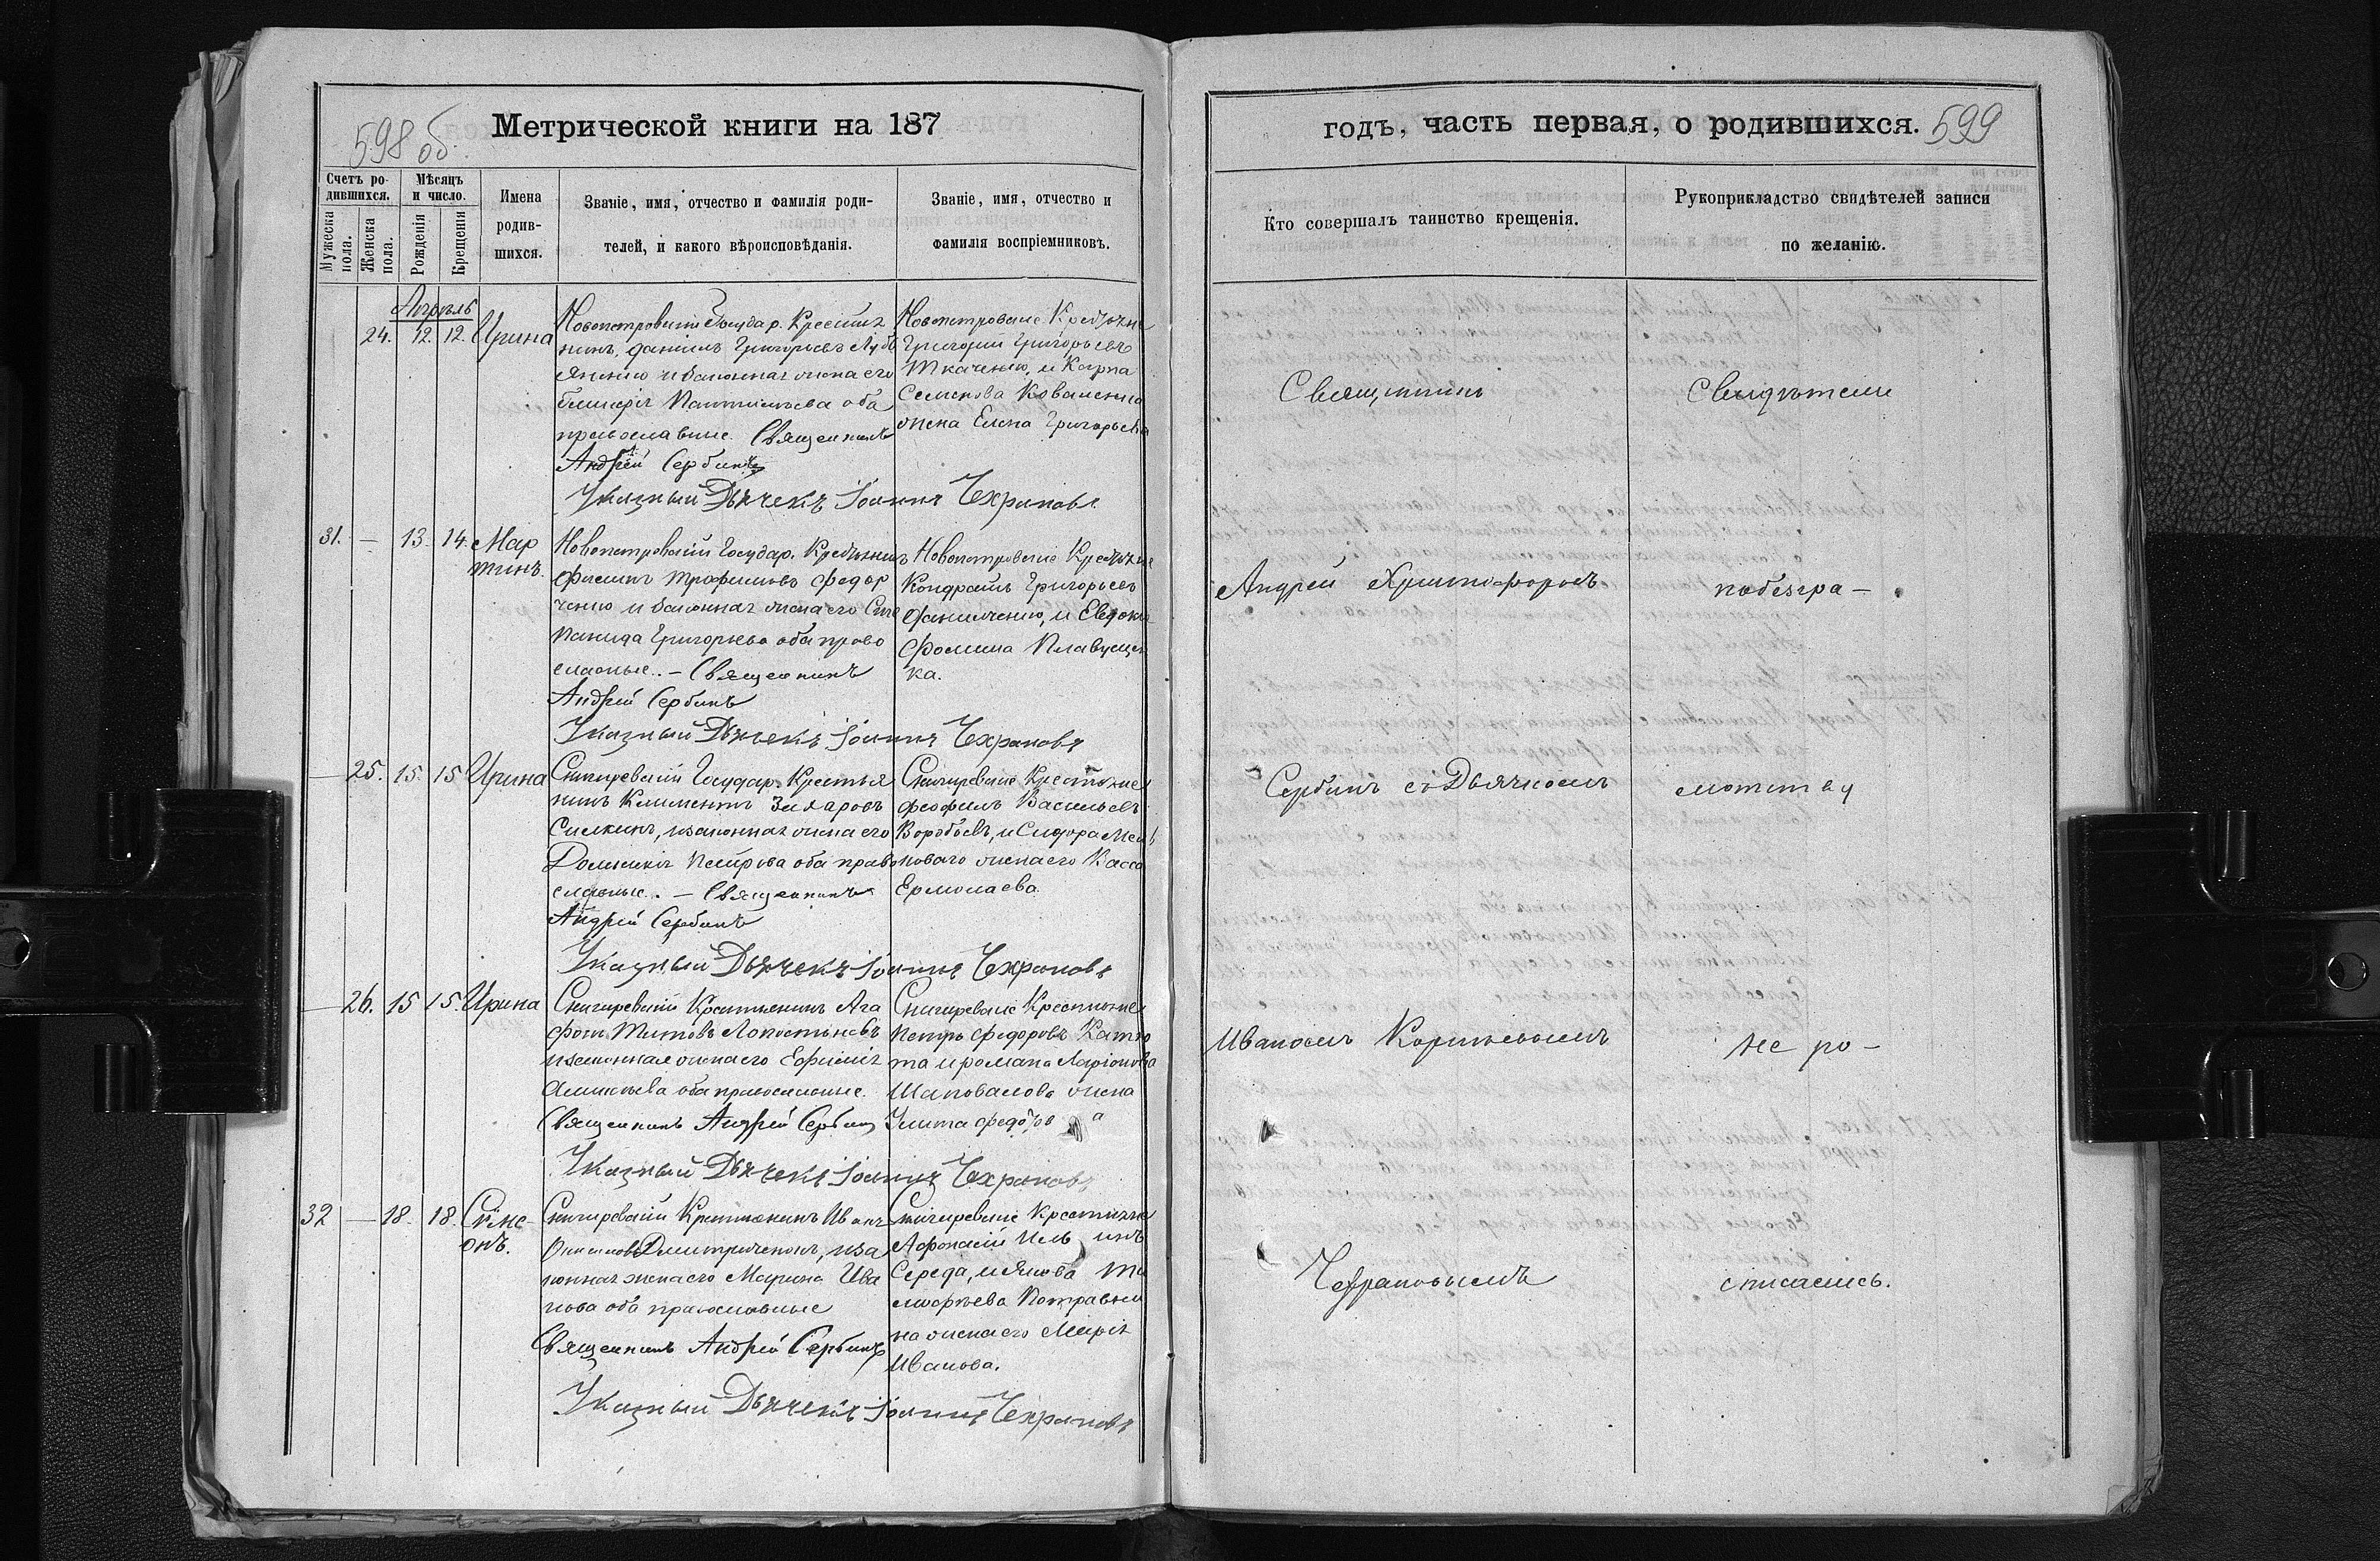 598 об.
Метрической книги на 187
Счетъ ро-
дившихся.
Мужеска пола.
Женска пола.
Мѣсяцъ
и число.
Рожденія
Крещенія
Имена
родив-
шихся.
Званіе, имя, отчество и фамилія роди-
телей, и какого вѣроисповѣданія.
Званіе, имя, отчество и
фамилія воспріемниковъ.
Апрѣль
24. 12. 12. Ирина
Новопетровскій Государ. Крестья
нинъ, Даніилъ Григорьевъ
и законная жена его
оба
православные. Священникъ
Андрей Сербинъ
Указный Дьячекъ Іоаннъ Чехрановъ
Новопетровскіе Крестьяне
Григорій Григорьевъ
Ткаченко, и Карпа
Семенова Коваленко
жена Елена Григорьева
31. — 13. 14. Мар
тинъ.
Новопетровскій Государ. Крестьянинъ
Филипъ Трофимовъ Федор
ченко и законная жена его Сте
панида Григорьева оба право
славные. – Священникъ
Андрей Сербинъ
Указный Дьячекъ Іоаннъ Чехрановъ
Новопетровскіе Крестьяне
Кондратъ Григорьевъ
Данильченко, и Евдокія
Фомина Плавущен
ка.
— 25. 15. 15 Ирина
Снигиревскій Государ. Крестья
нинъ Климентъ Захаровъ
законная жена его
Домникія Петрова оба право
славные. – Священникъ
Андрей Сербинъ
Указный Дьячекъ Іоаннъ Чехрановъ
Снигиревскіе Крестьяне
Феофилъ Васильевъ
Воробьевъ, и Сидора
жена его Васса
Ермолаева.
— 26. 15 15. Ирина
Снигиревскій Крестьянинъ Ага
фонъ Титовъ
законная жена его Ефимія
оба православные.
Священникъ Андрей Сербинъ
Указный Дьячекъ Іоаннъ Чехрановъ
Снигиревскіе Крестьяне
Петръ Федоровъ
та и Романа Ларіонова
Шаповалова жена
Улита Федотова
32 — 18. 18. Сѵме-
онъ.
Снигиревскій Крестьянинъ Иванъ
Дмитриченко, иза
конная жена его Марина Ива
нова оба православные
Священникъ Андрей Сербинъ
Указный Дьячекъ Іоаннъ Чехрановъ
Снигиревскіе Крестьяне
Афанасій Ильинъ
Середа, и Якова Ти
мофѣева
на жена его Марія
Иванова.
годъ, часть первая, о родившихся. 599
Кто совершалъ таинство крещенія.
Рукоприкладство свидѣтелей записи
по желанію.
Священникъ
Андрей Христофоровъ
Сербинъ съ Дьячкомъ
Иваномъ Корниловымъ
Чехрановымъ
Свидѣтели
по безгра-
мотству
не ро-
списались.